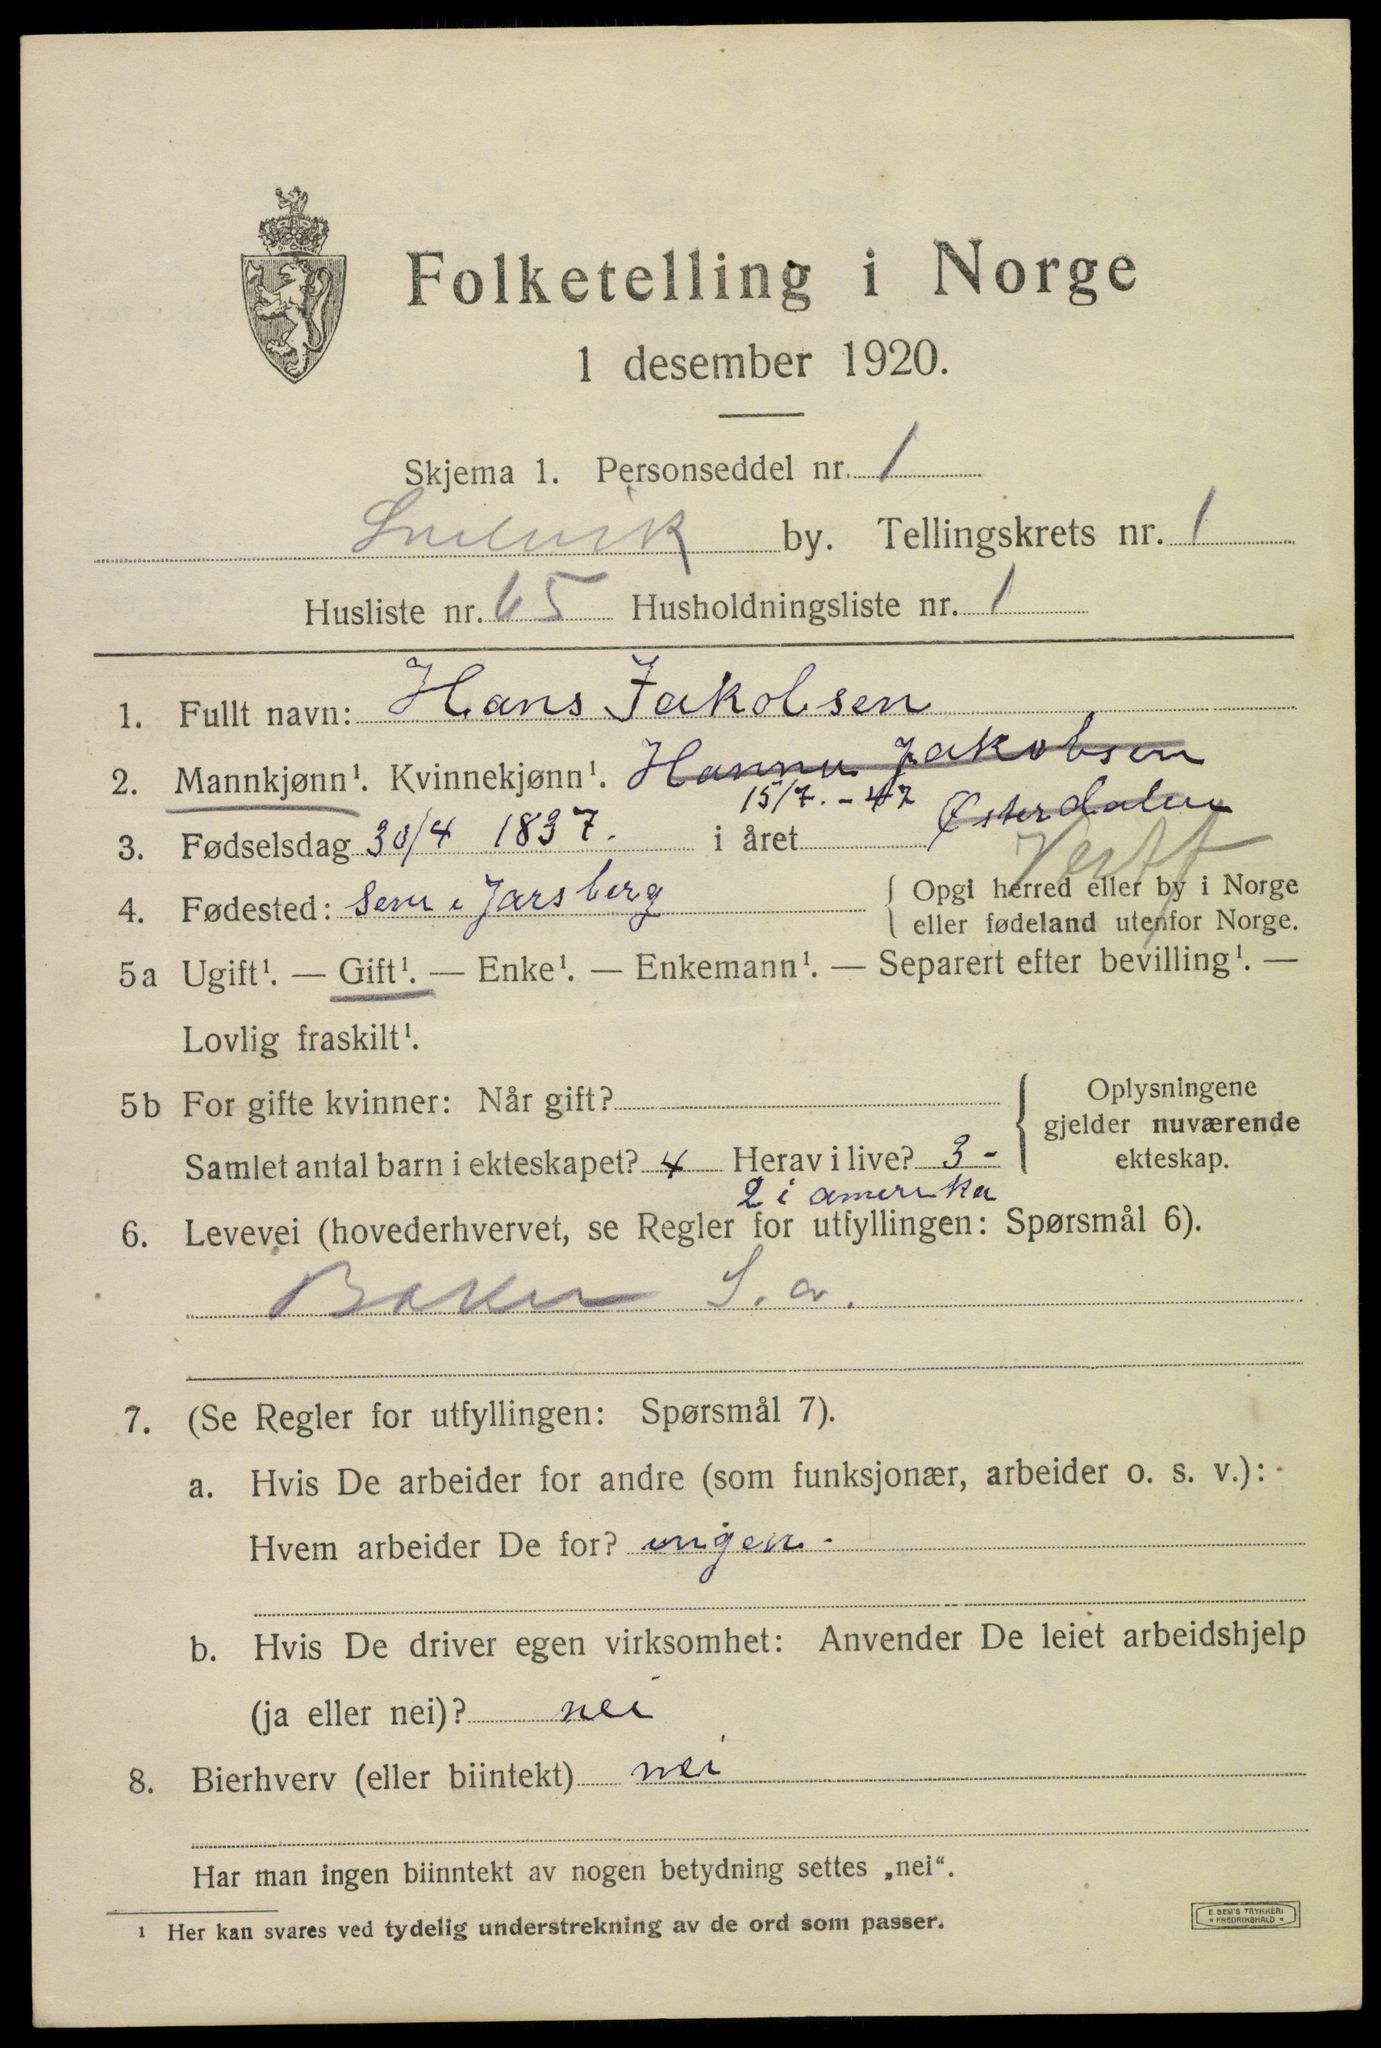 Folketelling i Norge
1 desember 1920.
Skjema 1. Personseddel nr. 1
Svelvik by. Tellingskrets nr. 1
Husliste nr. 65 Husholdningsliste nr. 1
1. Fullt navn: Hans Jakobsen
2. Mannkjønn¹. Kvinnekjønn¹. Hanna Jakobsen
15/7. - 47 Østerdalen
3. Fødselsdag 30/4 1837. i året
4. Fødested: Sem i Jarsberg { Opgi herred eller by i Norge
eller fødeland utenfor Norge.
5a Ugift¹. — Gift¹. — Enke¹. — Enkemann¹. — Separert efter bevilling¹. —
Lovlig fraskilt¹.
5b For gifte kvinner: Når gift? { Oplysningene
gjelder nuværende
ekteskap.
Samlet antal barn i ekteskapet? 4 Herav i live? 3 -
2 i amerika
6. Levevei (hovederhvervet, se Regler for utfyllingen: Spørsmål 6).
Baker S. a.
7. (Se Regler for utfyllingen: Spørsmål 7).
a. Hvis De arbeider for andre (som funksjonær, arbeider o. s. v.):
Hvem arbeider De for? ingen.
b. Hvis De driver egen virksomhet: Anvender De leiet arbeidshjelp
(ja eller nei)? nei
8. Bierhverv (eller biintekt) nei
Har man ingen biinntekt av nogen betydning settes „nei“.
¹ Her kan svares ved tydelig understrekning av de ord som passer.
E. SEM'S TRYKKERI
* FREDRIKSHALD *